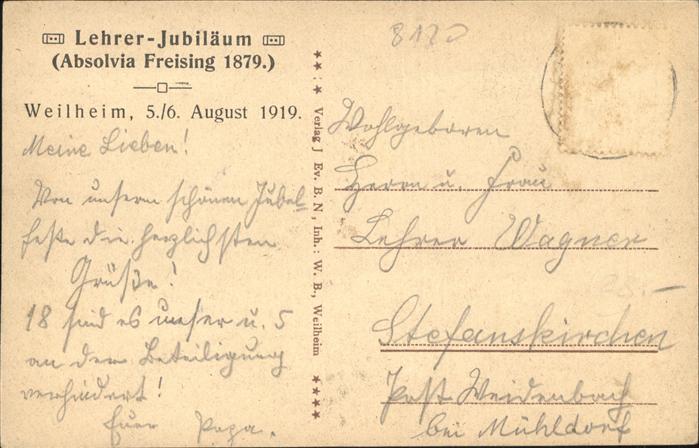 Lehrer-Jubiläum
(Absolvia Freising 1879.)
Weilheim, 5./6. August 1919.
Meine Lieben!
Von unserm schönen Jubel-
feste die herzlichsten
Grüße!
18 sind es unser u. 5
an der Beteiligung
verhindert!
Euer Papa.
★★:★ Verlag J. Ev. B. N., Inh.: W. B., Weilheim ★★★★
8120
Wohlgeboren
Herrn u. Frau
Lehrer Wagner
28.-
Stefanskirchen
Post Weidenbach
bei Mühldorf